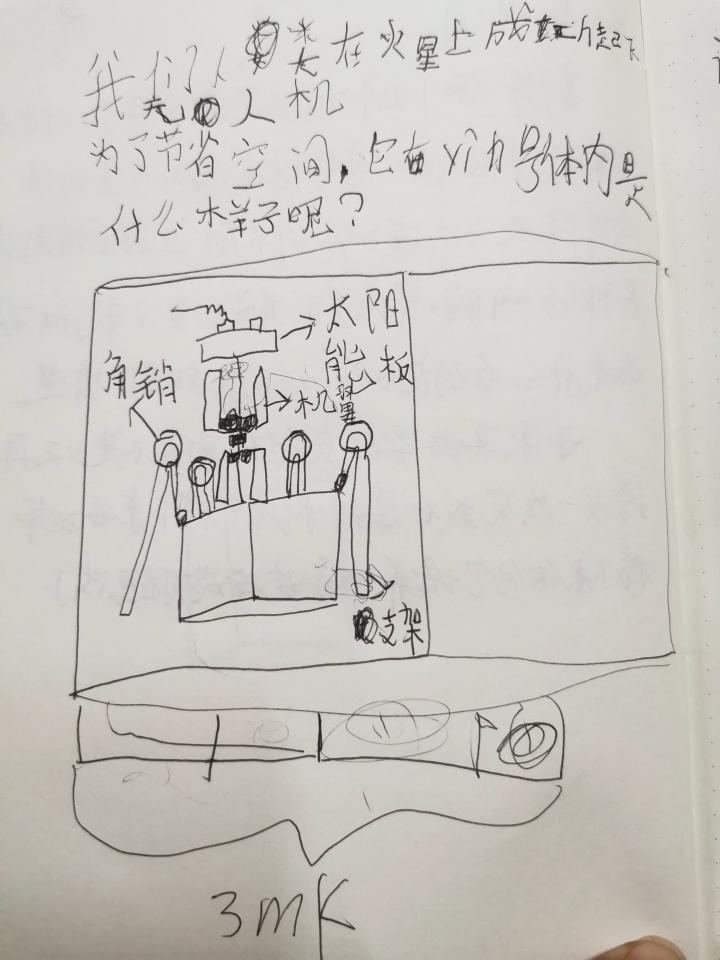 我们了人类在火星上成起飞
无人机
为了节省空间,它在yì力号体内是
什么样子呢?
太阳
能板
角销
机翼
支架
3mK